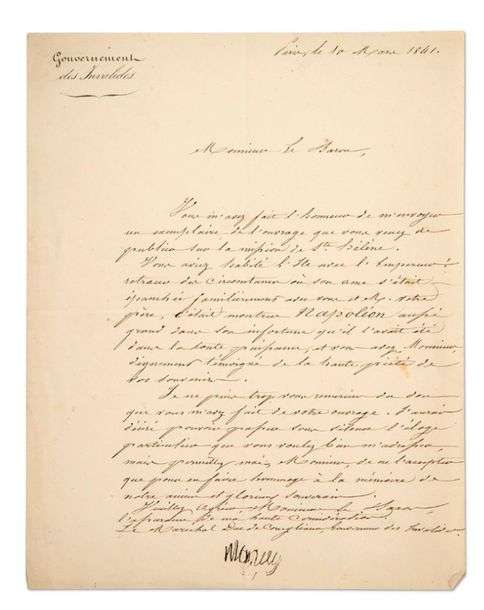 Gouvernement
des Invalides
Paris, le 10 Mars 1841.
Monsieur le Baron,
Vous m'avez fait l'honneur de m'envoyer
un exemplaire de l'ouvrage que vous venez de
publier sur la mission de Ste Hélène.
Vous avez habité l'Ile avec l'Empereur :
retracer des circonstances où son ame s'était
épanchée familièrement avec vous et M. votre
père, c'était montrer Napoléon aussi
grand dans son infortune qu'il l'avait été
dans la toute puissance, et vous avez, Monsieur,
dignement témoigné de la haute piété de
vos souvenirs.
Je ne puis trop vous remercier du don
que vous m'avez fait de votre ouvrage. J'aurais
désiré pouvoir passer sous silence l'éloge
particulier que vous voulez bien m'adresser,
mais permettez moi, Monsieur, de ne l'accepter
que pour en faire hommage à la mémoire de
notre ancien et glorieux souverain.
Veuillez agréer, Monsieur le Baron,
l'expression de ma haute considération
Le Maréchal Duc de Conegliano Gouverneur des Invalides
Moncey